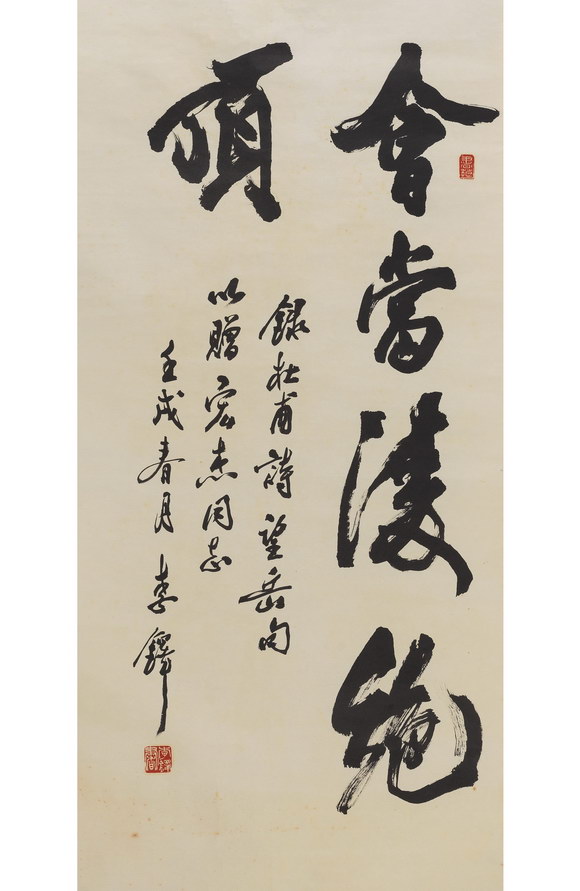 會當凌絶
頂
錄杜甫詩望岳句
以贈宏杰同志
壬戌春月 李鐸